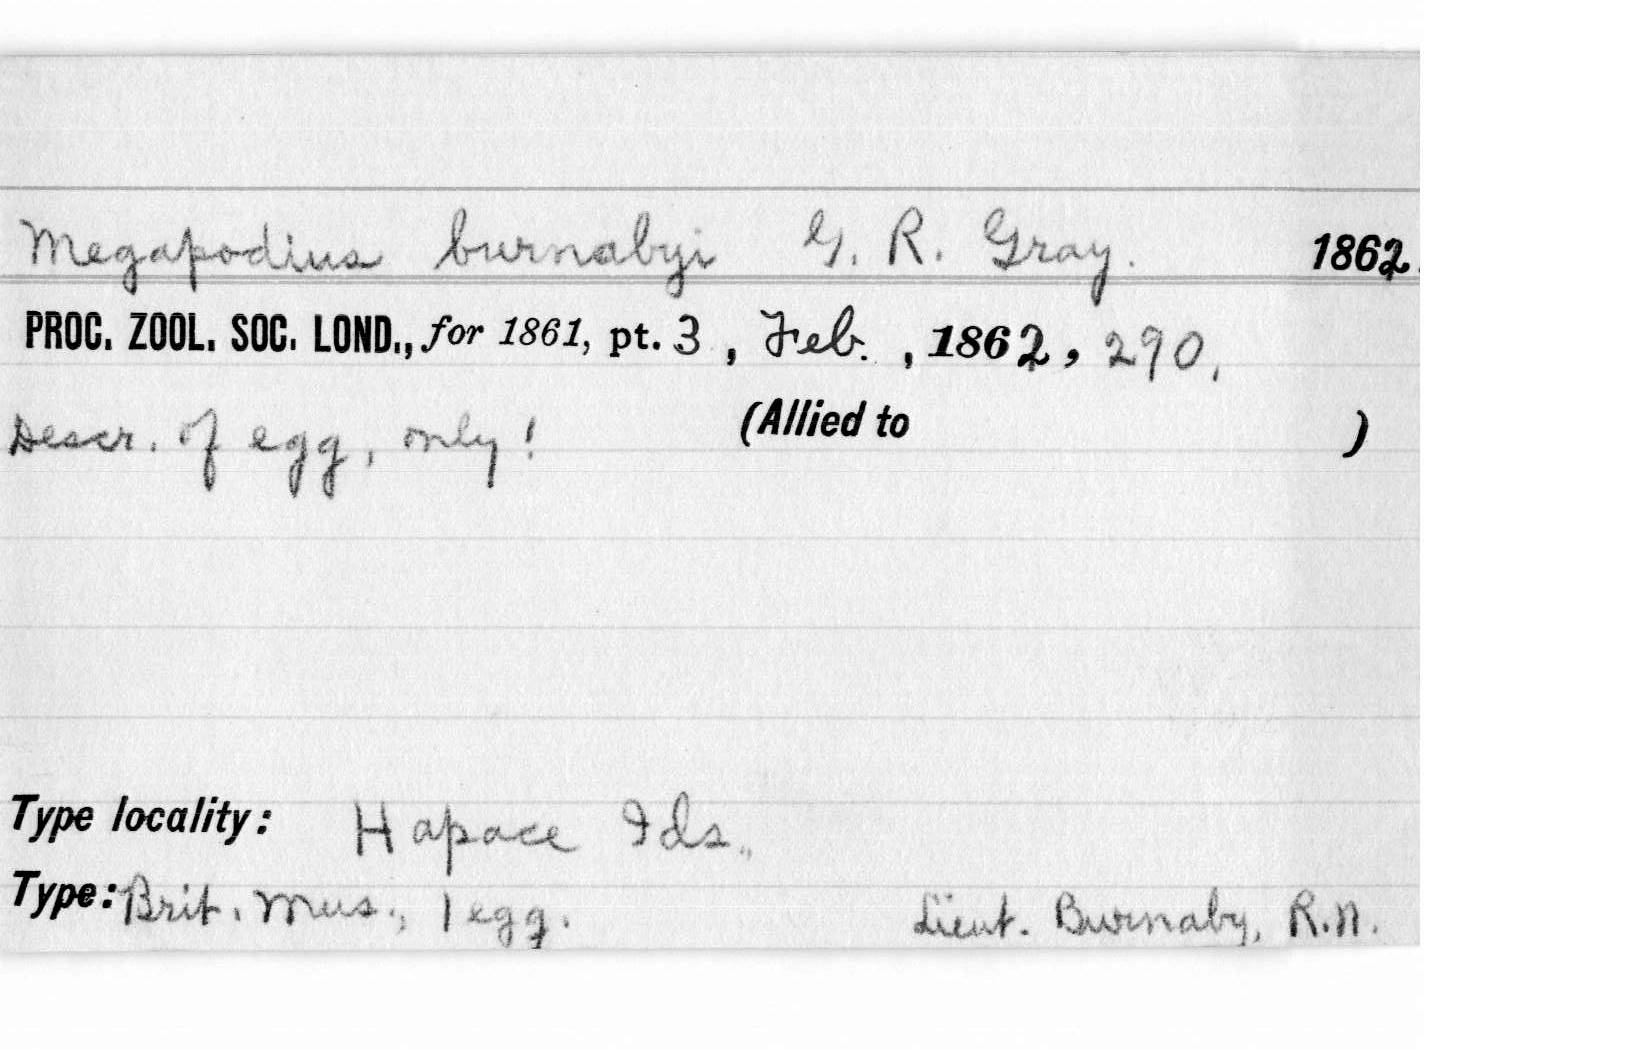 Megapodius burnabyi G. R. Gray. 1862.
PROC. ZOOL. SOC. LOND., for 1861, pt. 3, Feb., 1862, 290.
Descr. of egg, only! (Allied to )
Type locality: Hapace Ids.,
Type: Brit. Mus., 1 egg. Lieut. Burnaby, R.N.